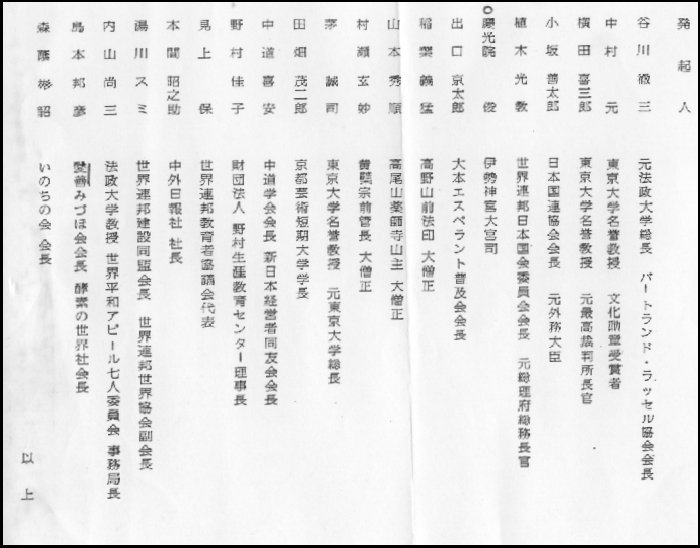 発起人
谷川徹三 元法政大学総長 バートランド・ラッセル協会会長
中村元 東京大学名誉教授 文化勲章受賞者
横田喜三郎 東京大学名誉教授 元最高裁判所長官
小坂善太郎 日本国連協会会長 元外務大臣
植木光教 世界連邦日本国会委員会会長 元総理府総務長官
慶光院俊 伊勢神宮大宮司
出口京太郎 大本エスペラント普及会会長
稲葉義猛 高野山前法印 大僧正
山本秀順 高尾山薬師寺山主 大僧正
村瀬玄妙 黄檗宗前管長 大僧正
茅誠司 東京大学名誉教授 元東京大学総長
田畑茂二郎 京都芸術短期大学学長
中道喜安 中道学会会長 新日本経営者同友会会長
野村佳子 財団法人 野村生涯教育センター理事長
見上保 世界連邦教育者協議会代表
本間昭之助 中外日報社 社長
湯川スミ 世界連邦建設同盟会長 世界連邦世界協会副会長
内山尚三 法政大学教授 世界平和アピール七人委員会 事務局長
島本邦彦 愛善みづほ会会長 酵素の世界社会長
森蔭彬韶 いのちの会 会長
以上